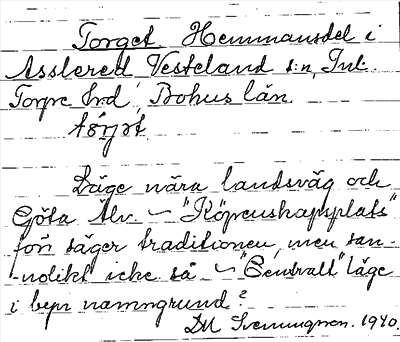 Torget. Hemmansdel i
Asslered Vesteland s:n, Inl.
Torpe hrd, Bohus län.
tórjət

Läge nära landsväg och
Göta Älv. ~ "Köpenskapsplats"
förr säger traditionen, men san-
nolikt icke så ~ "Centralt" läge
i byn namngrund?
1940.